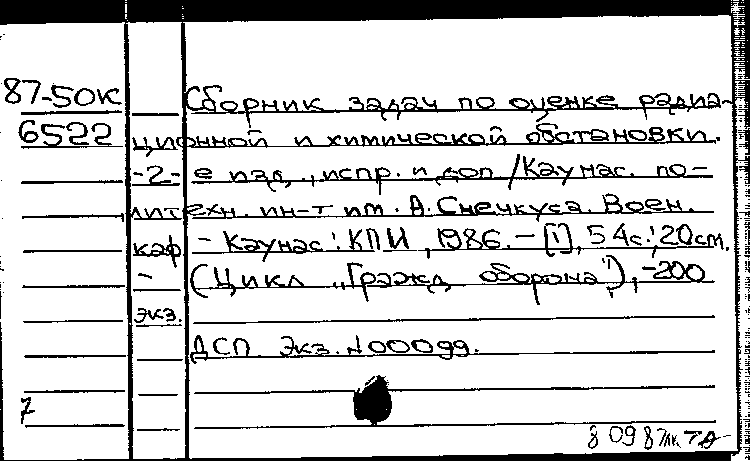 87-50К Сборник задач по оценке радиа-
6522 ционной и химической обстановки.
-2-е изд., испр. и доп /Каунас. по-
литехн. ин-т им. А. Снечкуса. Воен.
каф - Каунас: КПИ, 1986. - [1], 54с.; 20см.
- (Цикл „Гражд оборона"), -200
экз.
ДСП Экз. N00099.
7
8 09 87